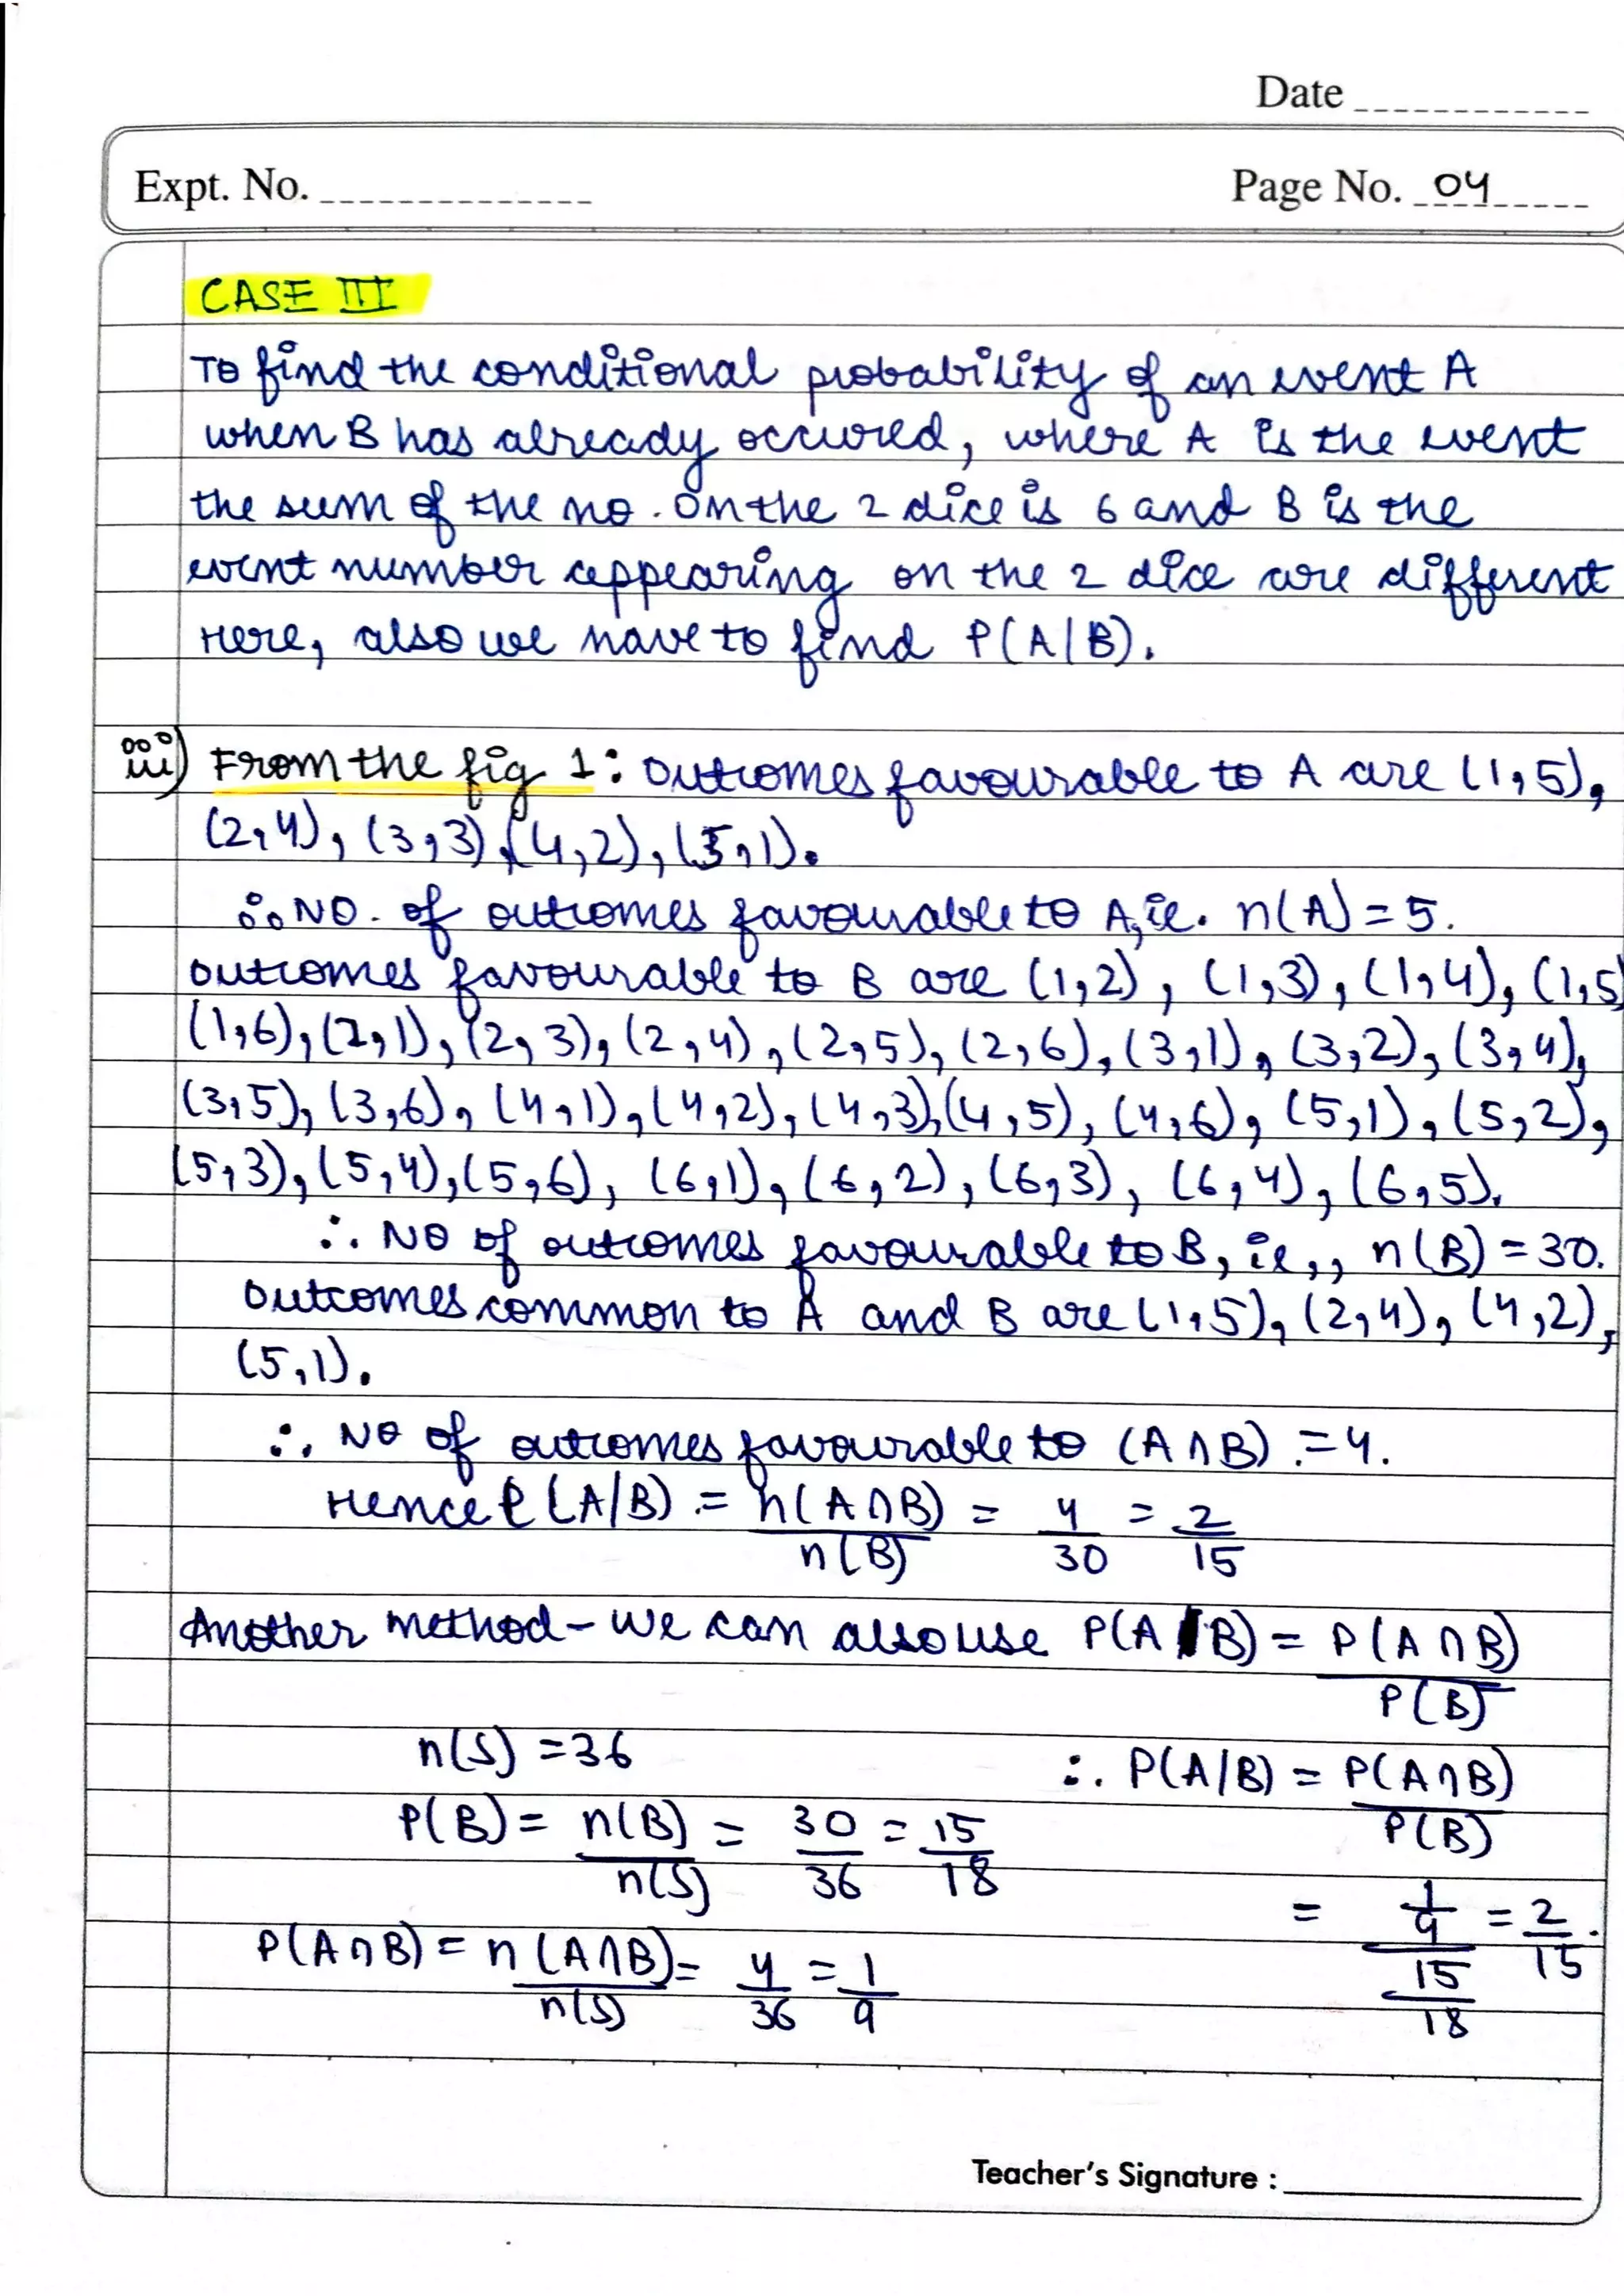 Date
Expt. No.
Page No. 04
CASE III
To find the conditional probability of an event A
when B has already occured, where A is the event
the sum of the no. on the 2 dice is 6 and B is the
event number appearing on the 2 dice are different
Here, also we have to find P(A|B).
iii) From the fig 1: Outcomes favourable to A are (1,5),
(2,4), (3,3), (4,2), (5,1).
∴ NO. of outcomes favourable to A, ie. n(A) = 5.
Outcomes favourable to B are (1,2), (1,3), (1,4), (1,5)
(1,6), (2,1), (2,3), (2,4), (2,5), (2,6), (3,1), (3,2), (3,4),
(3,5), (3,6), (4,1), (4,2), (4,3), (4,5), (4,6), (5,1), (5,2),
(5,3), (5,4), (5,6), (6,1), (6,2), (6,3), (6,4), (6,5).
∴ NO of outcomes favourable to B, ie,, n(B) = 30.
Outcomes common to A and B are (1,5), (2,4), (4,2),
(5,1).
∴ NO of outcomes favourable to (A∩B) = 4.
Hence P(A/B) = n(A∩B)/n(B) = 4/30 = 2/15
Another method - We can also use P(A|B) = P(A∩B)/P(B)
n(S) = 36
∴ P(A/B) = P(A∩B)/P(B)
P(B) = n(B)/n(S) = 30/36 = 15/18
= 1/9 / 15/18 = 2/15.
P(A∩B) = n(A∩B)/n(S) = 4/36 = 1/9
Teacher's Signature :